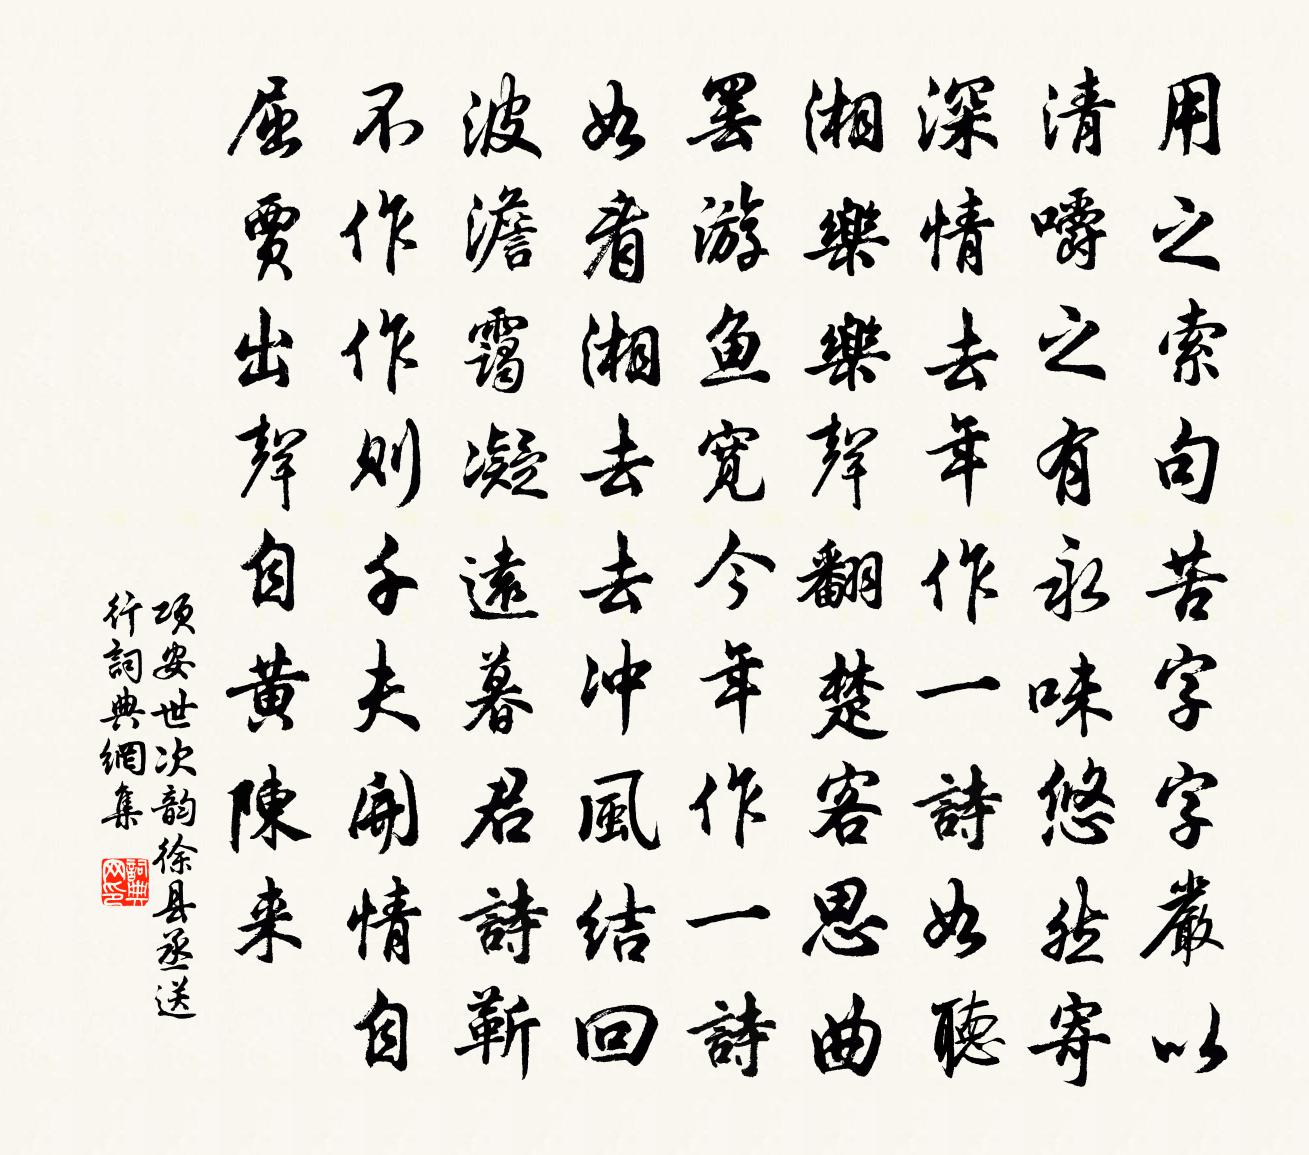 用之索句苦字字嚴以
清嚼之有永味悠然寄
深情去年作一詩如聽
湘樂樂聲翻楚客思曲
罢游鱼寬今年作一詩
如看湘去去冲風结回
波澹靄凝遠暮君詩靳
不作作则千夫開情自
屈賈出聲自黄陳来
项安世次韵徐县丞送
行詞典網集
詞典网印